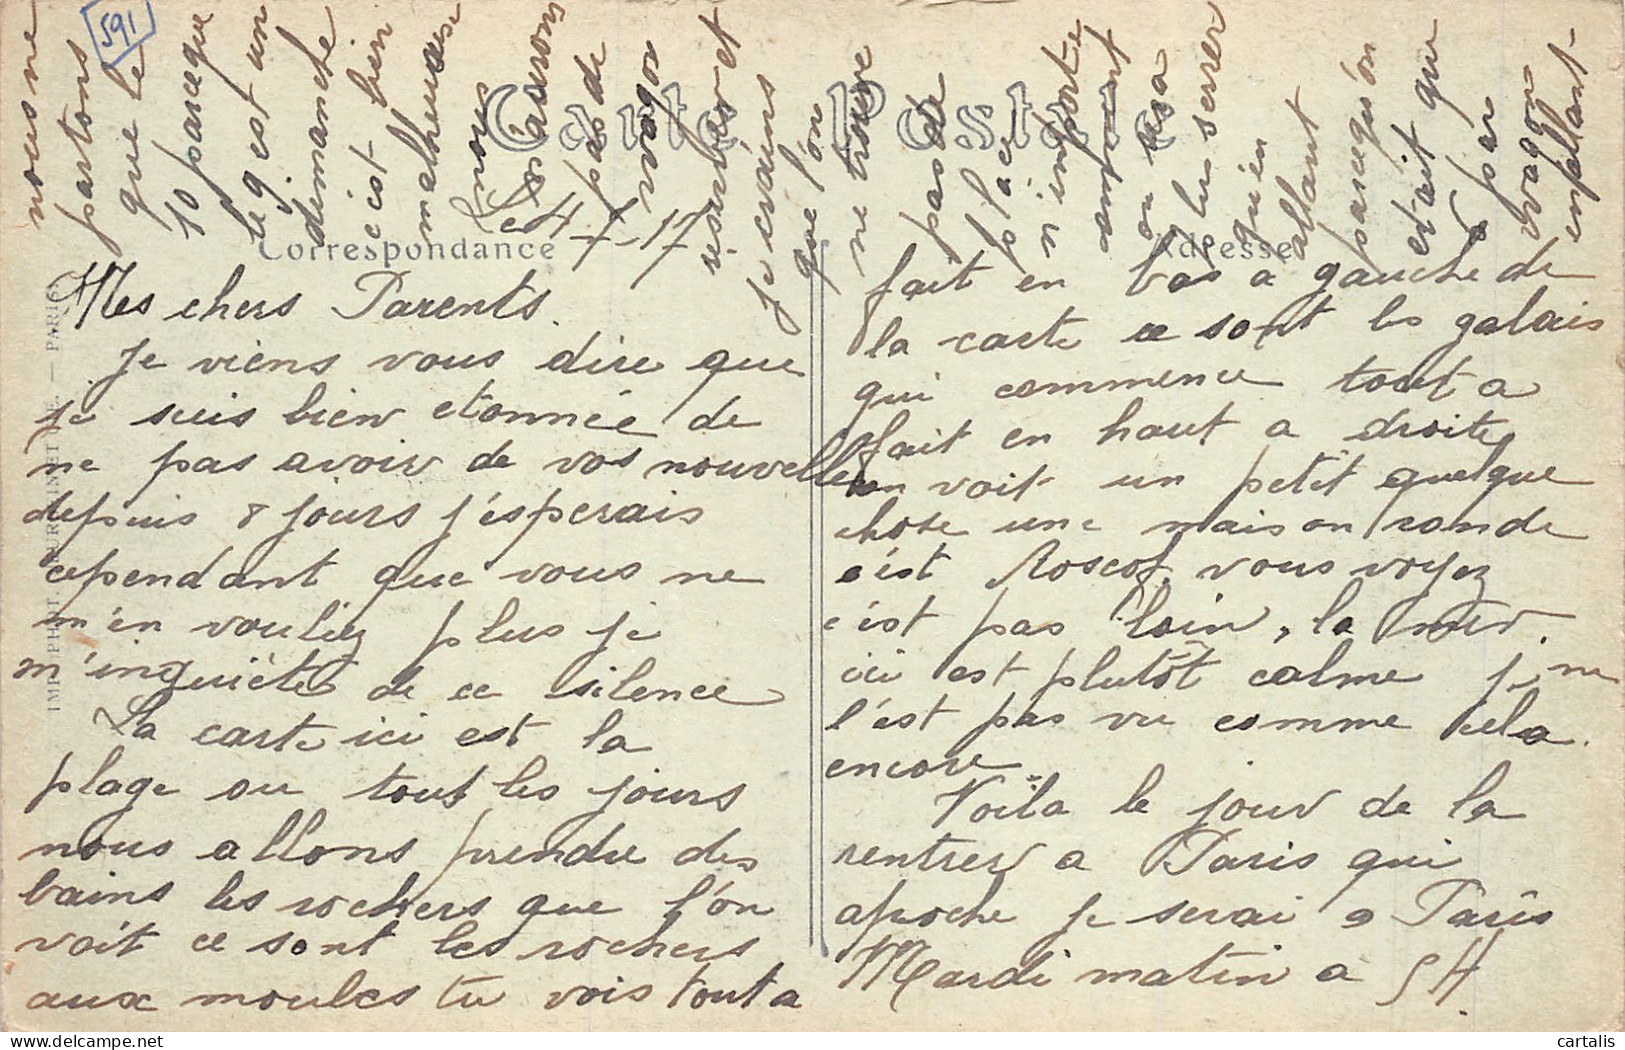 591
Carte Postale
Correspondance
Adresse
Le 4-7-17
Mes chers Parents.
Je viens vous dire que
je suis bien etonnée de
ne pas avoir de vos nouvelles
depuis 8 jours j'esperais
cependant que vous ne
m'en vouliez plus je
m'inquiète de ce silence
La carte ici est la
plage ou tout les jours
nous allons prendre des
bains les rochers que l'on
voit ce sont les rochers
aux moules tu vois tout a
fait en bas a gauche de
la carte ce sont les galais
qui commence tout a
fait en haut a droite
on voit un petit quelque
chose une maison ronde
c'est Roscof, vous voyez
c'est pas loin, la mer
ici est plutôt calme je ne
l'est pas vu comme cela
encore.
Voila le jour de la
rentrer a Paris qui
aproche je serai a Paris
Mardi matin a 5H.
nous ne
partons
que le
10 parceque
le 9 est un
dimanche
c'est bien
malheureux
nous
n'aurons
pas de
wagon
reserver et
je crains
que l'on
ne trouve
pas de
place
n'importe
comment
on sa
lu serrer
qu'en
allant
parcequ'on
etait que
par
wagon
en allant-